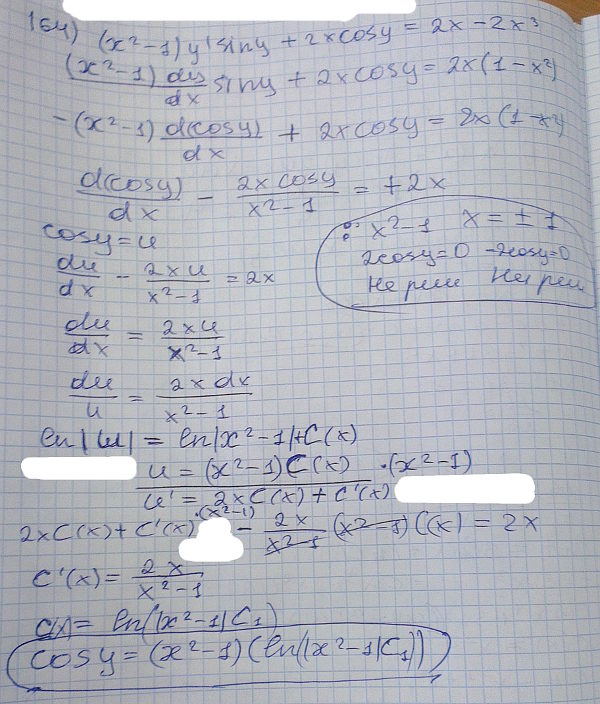 164) (x²-1)y' siny + 2xcosy = 2x-2x³
(x²-1) dy/dx siny + 2xcosy = 2x(1-x²)
-(x²-1) d(cosy)/dx + 2xcosy = 2x(1-x²)
d(cosy)/dx - 2xcosy/x²-1 = +2x
: x²-1 x = ±1
2cosy=0 -2cosy=0
Не реш Не реш
cosy=u
du/dx - 2xu/x²-1 = 2x
du/dx = 2xu/x²-1
du/u = 2xdx/x²-1
ln|u| = ln|x²-1|+C(x)
u = (x²-1)C(x)
u' = 2xC(x) + C'(x) ·(x²-1)
2xC(x) + C'(x) ·(x²-1) - 2x/x²-1 (x²-1)C(x) = 2x
C'(x) = 2x/x²-1
C(x) = ln(|x²-1|C₁)
cosy = (x²-1)(ln(|x²-1|C₁))